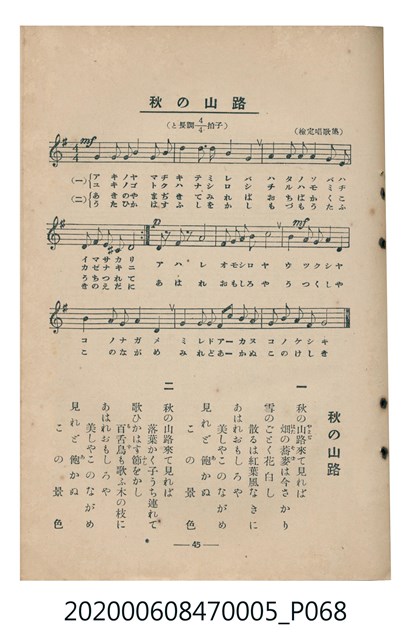 路山の秋
(と長調4/4拍子)
(檢定唱歌集)
mf
(一)
アキノヤマヂキテミレバハタノソバハ
ユキノゴトクハナシロシチルハモミヂ
(二)
p
mf
イマサカリ
カゼナキニ
アハレオモシロヤウツクシヤ
あはれおもしろやうつくしや
コノナガメミレドアーカヌコノケシキ
このながめみれどあーかぬこのけしき
秋の山路
一
秋の山路來て見れば
畑の蕎麥は今さかり
雪のごとく花白し
散るは紅葉風なきに
あはれおもしろや
美しやこのながめ
見れど飽かぬ
この景色
二
秋の山路來て見れば
落葉かく子うち連れて
歌ひかはす節をかし
百舌鳥も歌ふ木の枝に
あはれおもしろや
美しやこのながめ
見れど飽かぬ
この景色
— 45 —
202000608470005_P068